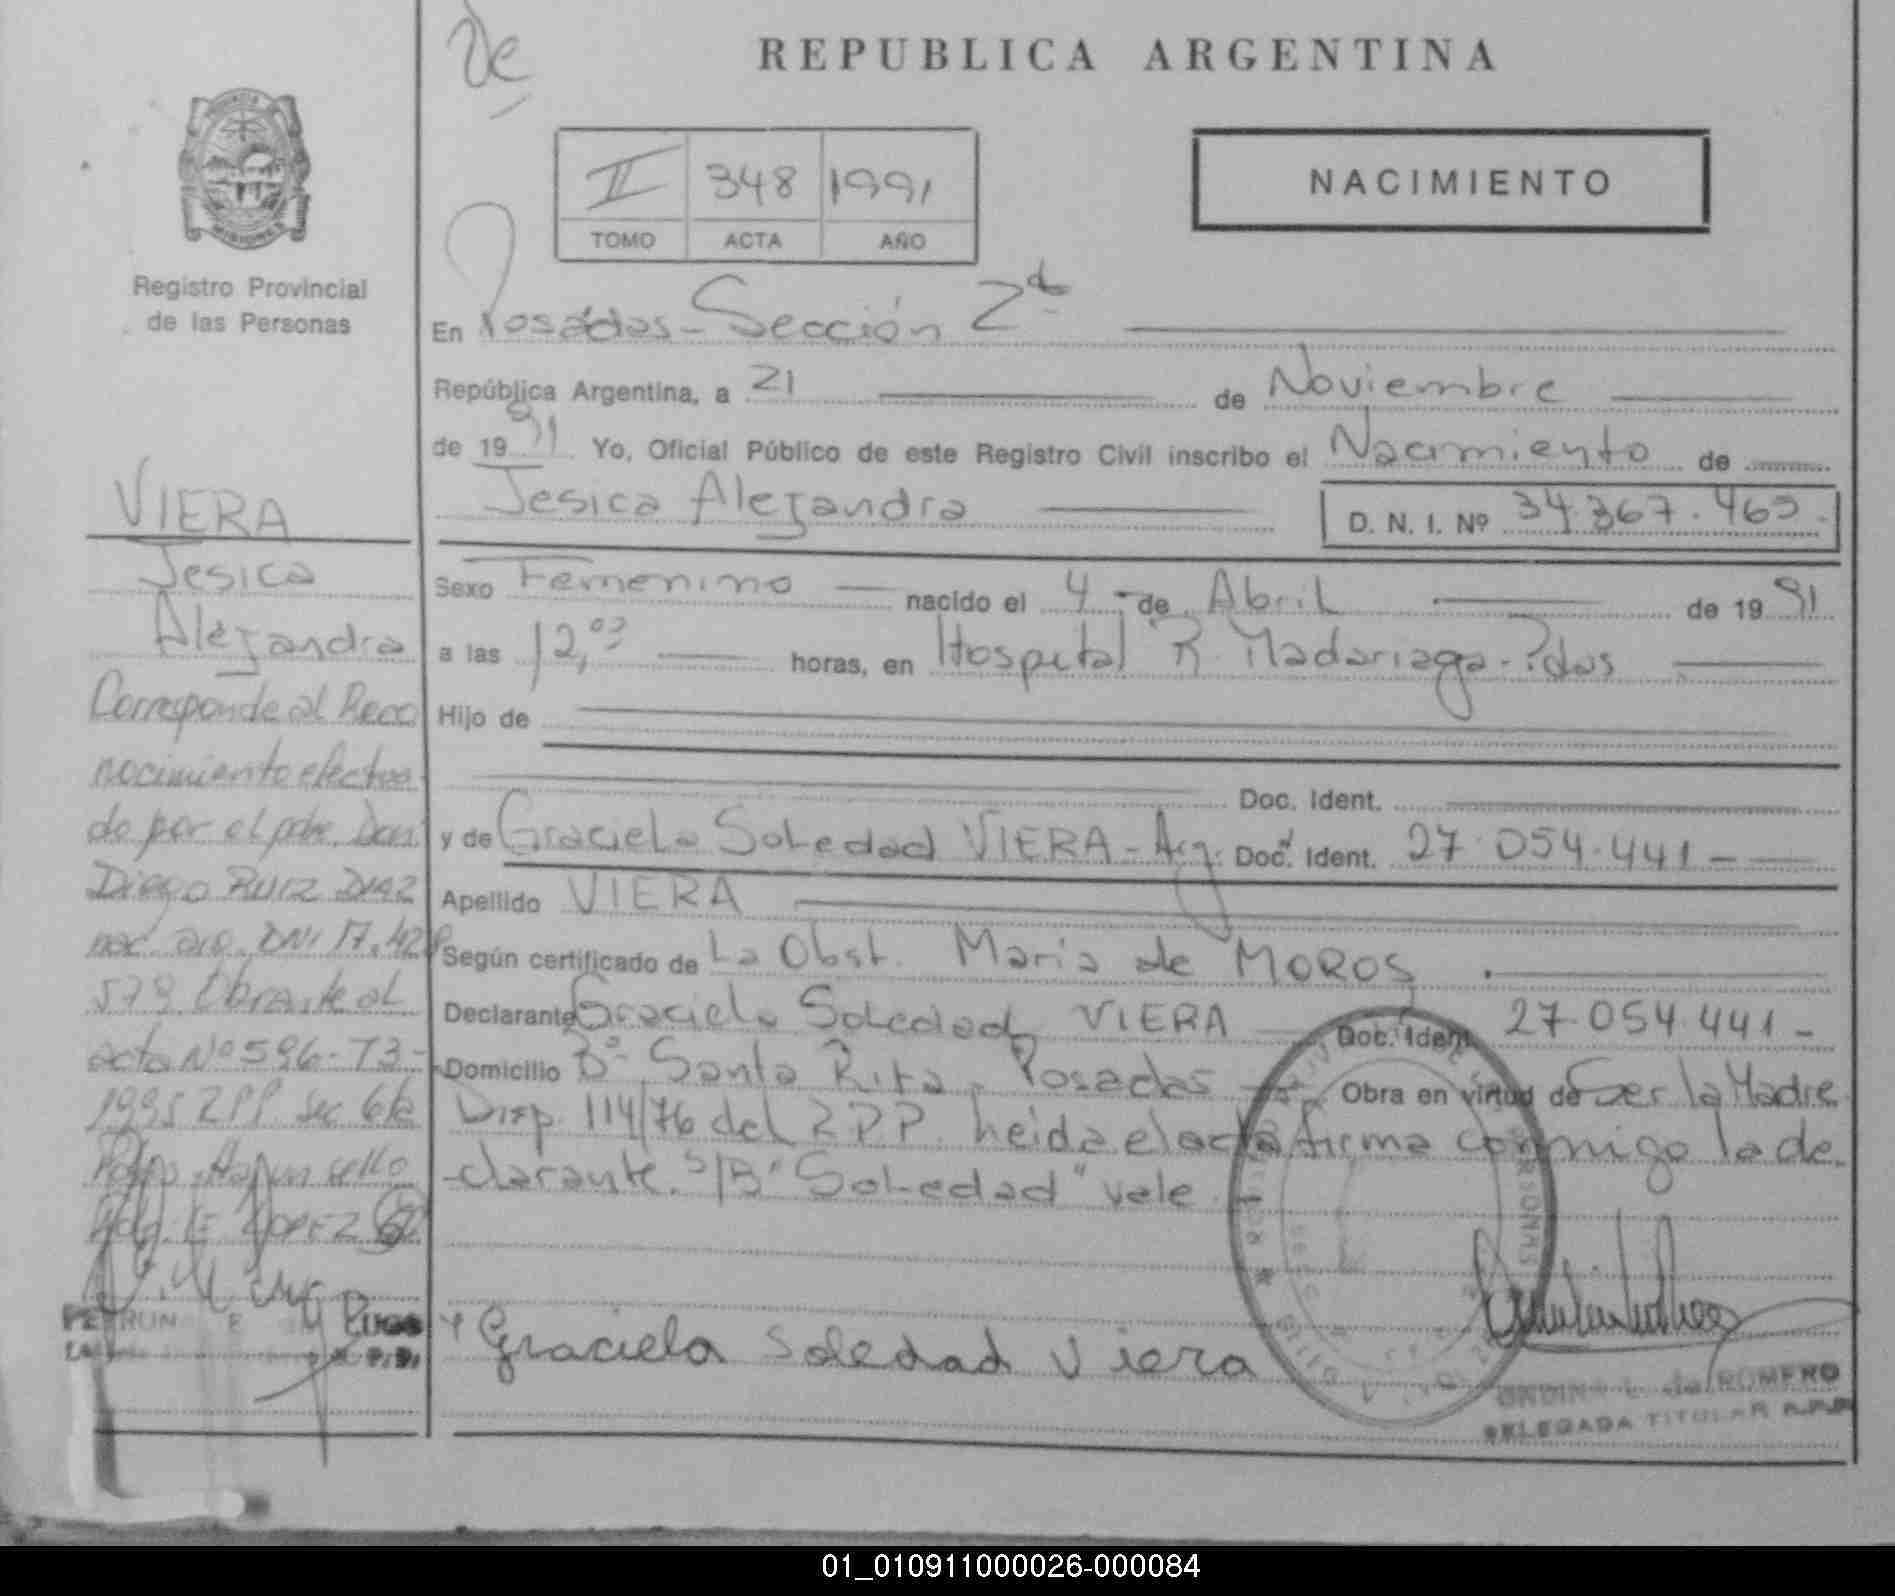 De
REPUBLICA ARGENTINA
II 348 1991
TOMO ACTA AÑO
NACIMIENTO
Registro Provincial
de las Personas
En Posadas - Sección 2da
República Argentina, a 21 de Noviembre
de 1991 Yo, Oficial Público de este Registro Civil inscribo el Nacimiento de
Jesica Alejandra
D. N. I. Nº 34.367.465.
Sexo Femenino nacido el 4 - de Abril de 1991
a las 12,03 horas, en Hospital R. Madariaga - Pdas
Hijo de
Doc. Ident.
y de Graciela Soledad VIERA - Arg. Doc. Ident. 27.054.441 -
Apellido VIERA
Según certificado de La Obst. Maria de MOROS
Declarante Graciela Soledad VIERA Doc. Ident. 27.054.441 -
Domicilio Bº Santa Rita, Posadas Obra en virtud de Ser la Madre
Disp. 114/76 del RPP. heida el acta firma conmigo la de
clarante. S/B "Soledad" vale
Graciela Soledad Viera
de ROMERO
DELEGADA TITULAR R.P.P.
VIERA
Jesica
Alejandra
Corresponde al Reco
nocimiento efectua
do por el pdre. Don:
Diego RUIZ DIAZ
nac. arg. DNI 17.428
579 Obrante al
acta Nº 596 - T3 -
1995 RPP Sec 6ta
Hay un sello
LOPEZ
01_010911000026-000084